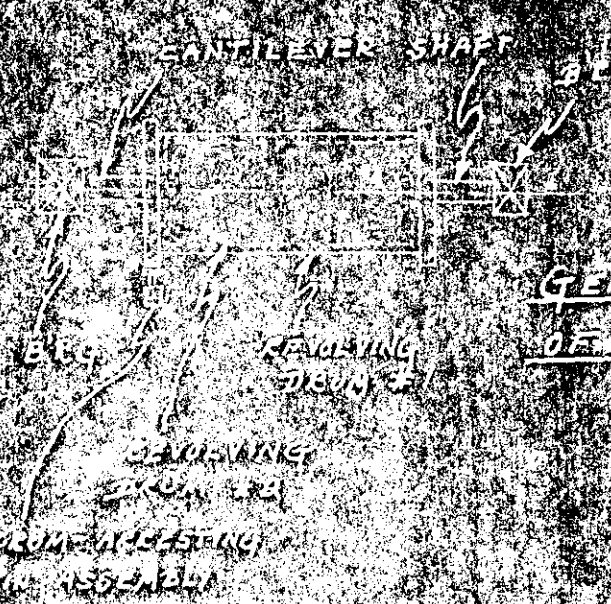 CANTILEVER SHAFT
BRG
REVOLVING
DRUM #1
REVOLVING
DRUM
DRUM-ARRESTING
ASSEMBLY